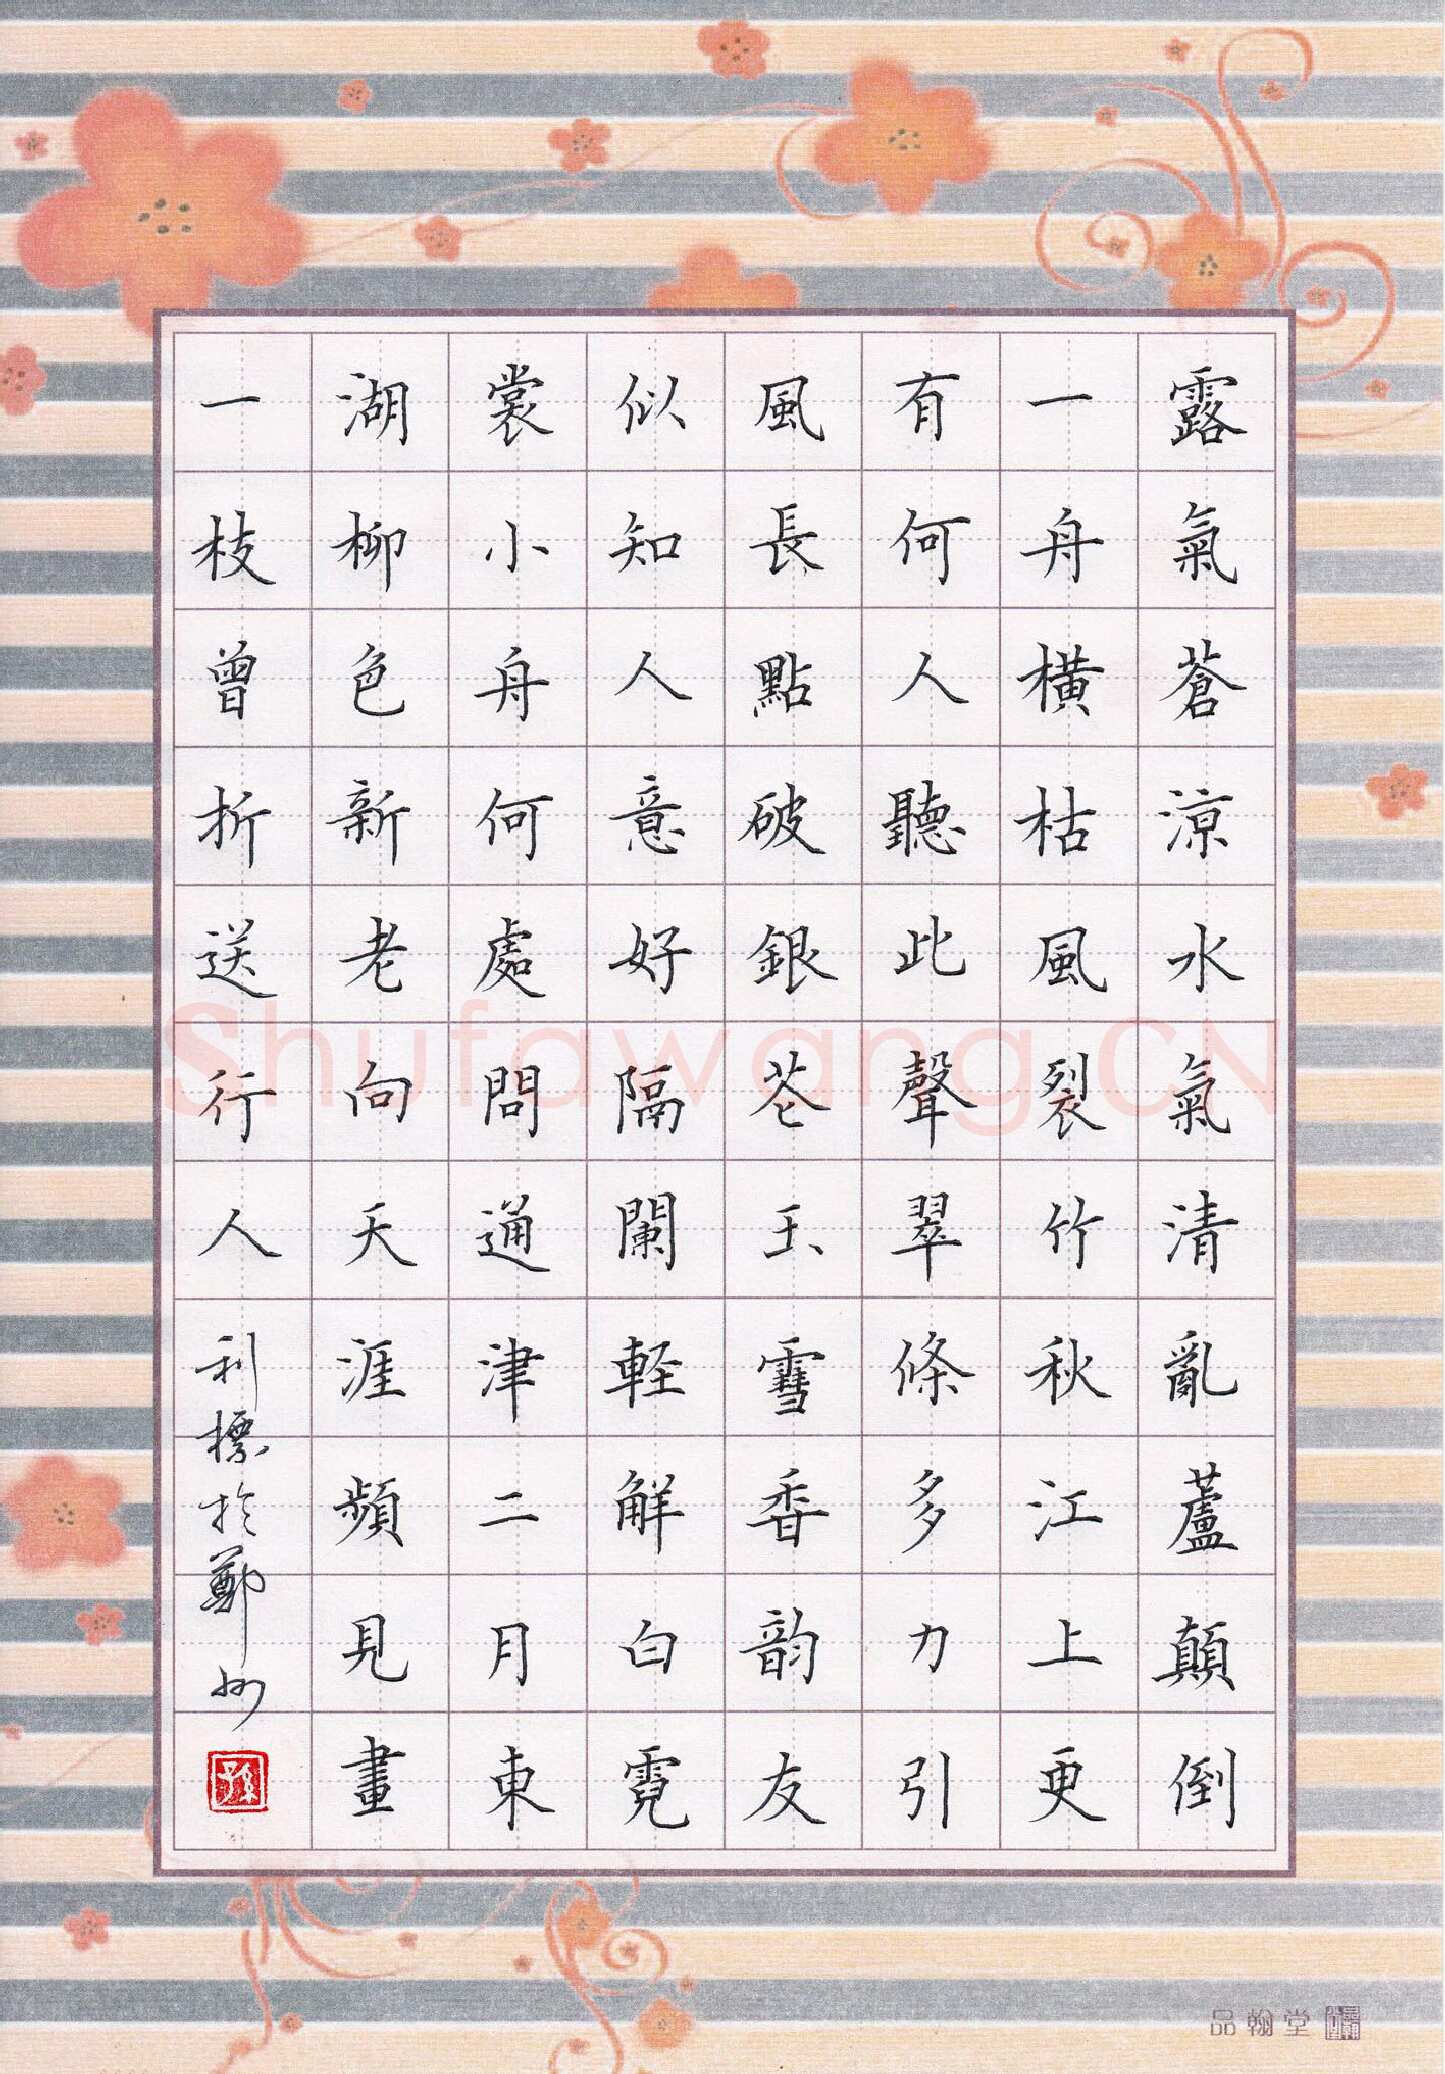 露氣蒼涼水氣清亂蘆顛倒
一舟橫枯風裂竹秋江上更
有何人聽此聲翠條多力引
風長點破銀苍玉雪香韵友
似知人意好隔闌軽解白霓
裳小舟何處問通津二月東
湖柳色新老向天涯頻見畫
一枝曾折送行人
利標於鄭州
孫
Shufawang.CN
品翰堂